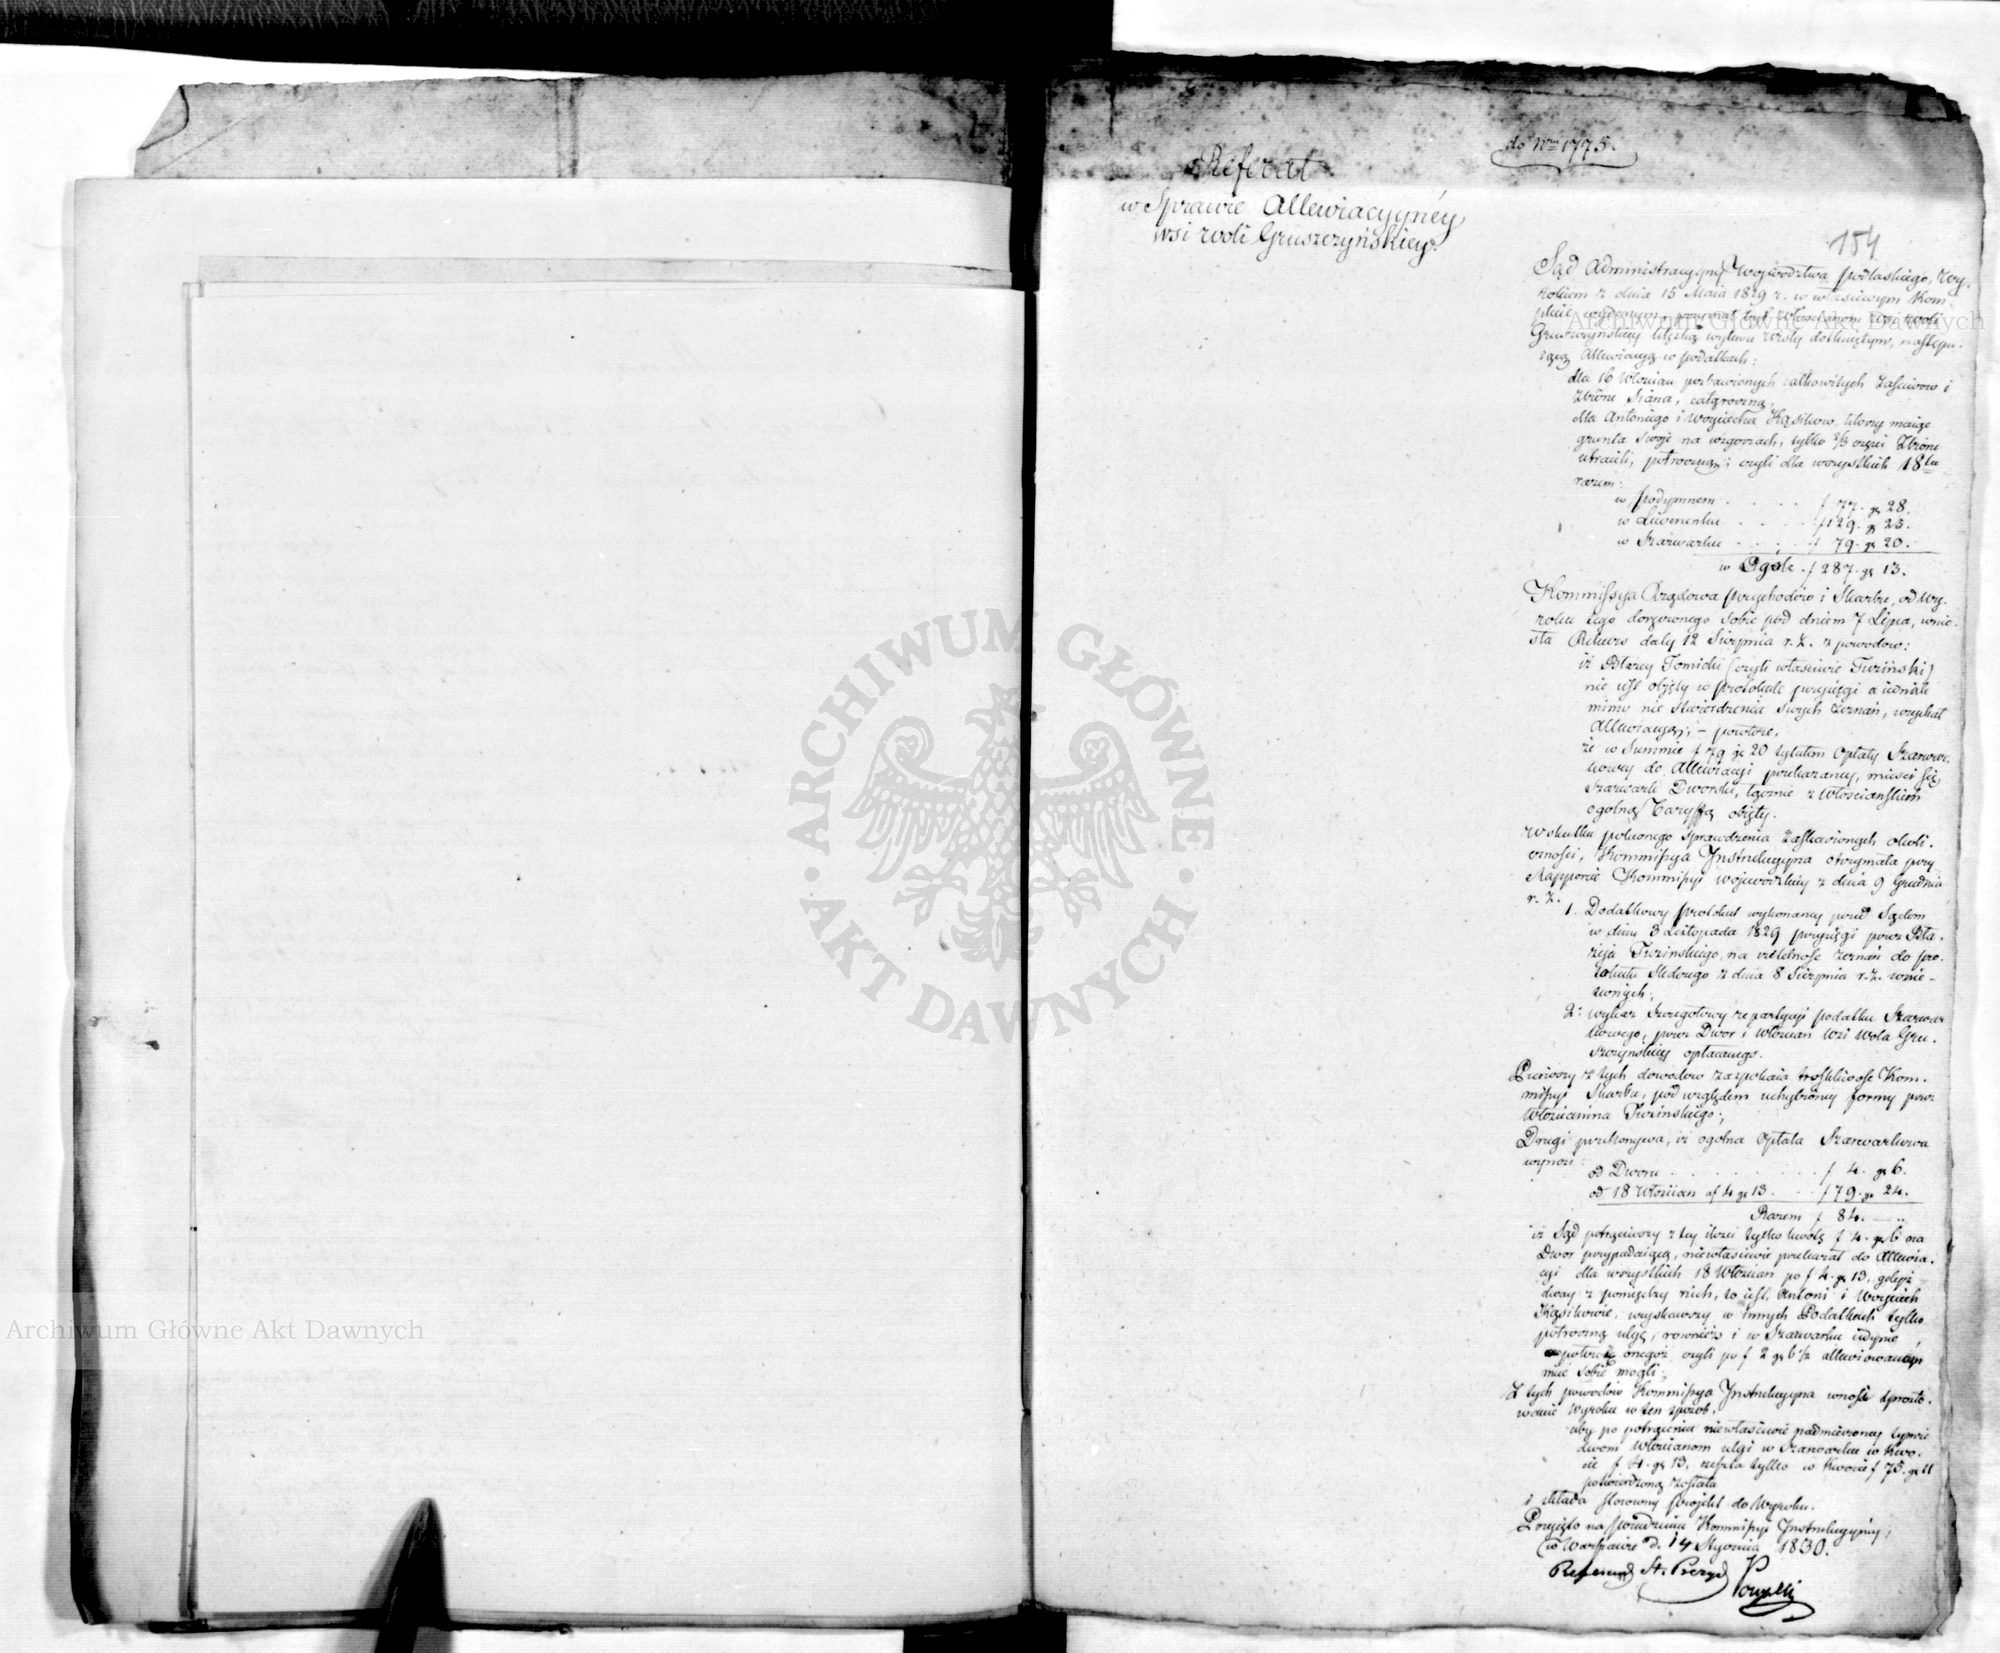 do Nru 1775.
Referat
w Sprawie Allewiacyynéy
wsi Woli Gruszczyńskiey.
154
Sąd Administracyjny Województwa Podlaskiego, Wy-
rokiem z dnia 15 Maia 1829 r. w właściwym Kom-
plecie wydanym, przyznał był Włościanom Wsi Woli
Gruszczyńskiey klęską wylewu Wisły dotkniętym, następu-
iącą Allewiacyą w podatkach:
dla 16 Włościan pozbawionych całkowitych Zasiewów i
zbioru Siana, całoroczną,
dla Antoniego i Woyciecha Kąsikow, którzy maiąc
grunta swoje na wzgorzach, tylko 2/3 części Zbioru
utracili, połroczną; czyli dla wszystkich 18tu
razem:
w Podymnem . . . . . f 77. gr 28.
w Liwerunku . . . . f 129. gr 23.
w Szarwarku . . . . f 79. gr 20.
w Ogole . f 287. gr 13.
Kommissya Rządowa Przychodów i Skarbu, od Wy-
roku tego doręczonego Sobie pod dniem 7 Lipca, wnio-
sła Rekurs daty 12 Sierpnia r. z. z powodow:
iż Błażey Tomicki (czyli właściwie Turiński)
nie iest objęty w protokule przysięgi a iednak
mimo nie stwierdzenia swych zeznań, uzyskał
Allewiacyą; – powtóre,
że w Summie f 79 gr 20 tytułem Opłaty Szarwar-
kowey do Allewiacyi przekazaney, mieści się,
Szarwark Dworski, łącznie z Włościańskim
ogolną Taryffą objęty.
W skutku poleconego sprawdzenia zastawionych okoli-
czności, Kommissya Instrukcyjna otrzymała przy
Rapporcie Kommissyi Woiewódzkiey z dnia 9 Grudnia
r. z.
1. Dodatkowy protokuł wykonaney przed Sądem
w dniu 3 Listopada 1829 przysięgi przez Bła-
żeja Turinskiego, na rzetelność zeznań do pro-
tokułu Śledczego z dnia 8 Sierpnia r. z. wnie-
sionych;
2. wykaz Szczegołowy repartycyi podatku Szarwar
kowego, przez Dwor i Włościan Wsi Wola Gru-
szczyńskiey opłacanego.
Pierwszy z tych dowodow zaspokaia troskliwość Kom-
missyi Skarbu, pod względem uchybioney formy przez
Włościanina Turinskiego;
Drugi przekonywa, iż ogolna Opłata Szarwarkowa
wynosi:
od Dworu . . . . . . . f 4. gr 6.
od 18 Włościan a f 4 gr 13. . . f 79. gr 24.
Razem f 84. — „
iż Sąd potrąciwszy z tey ilości tylko kwotę f 4. gr 6 na
Dwor przypadaiącą, niewłaściwie przekazał do Allewia-
cyi dla wszystkich 18 Włościan po f 4. gr 13, gdyż
dway z pomiędzy nich, to iest, Antoni i Woyciech
Kąsikowie, uzyskawszy w innych Podatkach tylko
połroczną ulgę, rownież i w Szarwarku iedynie
połowę onegoż czyli po f 2 gr 6 1/2 allewiowaną
mieć sobie mogli;
Z tych powodów Kommissya Instrukcyjna wnosi sprosto-
wanie Wyroku w ten sposób,
aby po potrąceniu niewłaściwie nadmierzoney tymże
dwom Włościanom ulgi w Szarwarku w kwo-
cie f 4. gr 13, reszta tylko w kwocie f 75. gr 11
potwierdzoną została
i składa stosowny projekt do Wyroku.
Przyięto na Posiedzeniu Kommissyi Instrukcyjney,
w Warszawie d. 14 Stycznia 1830.